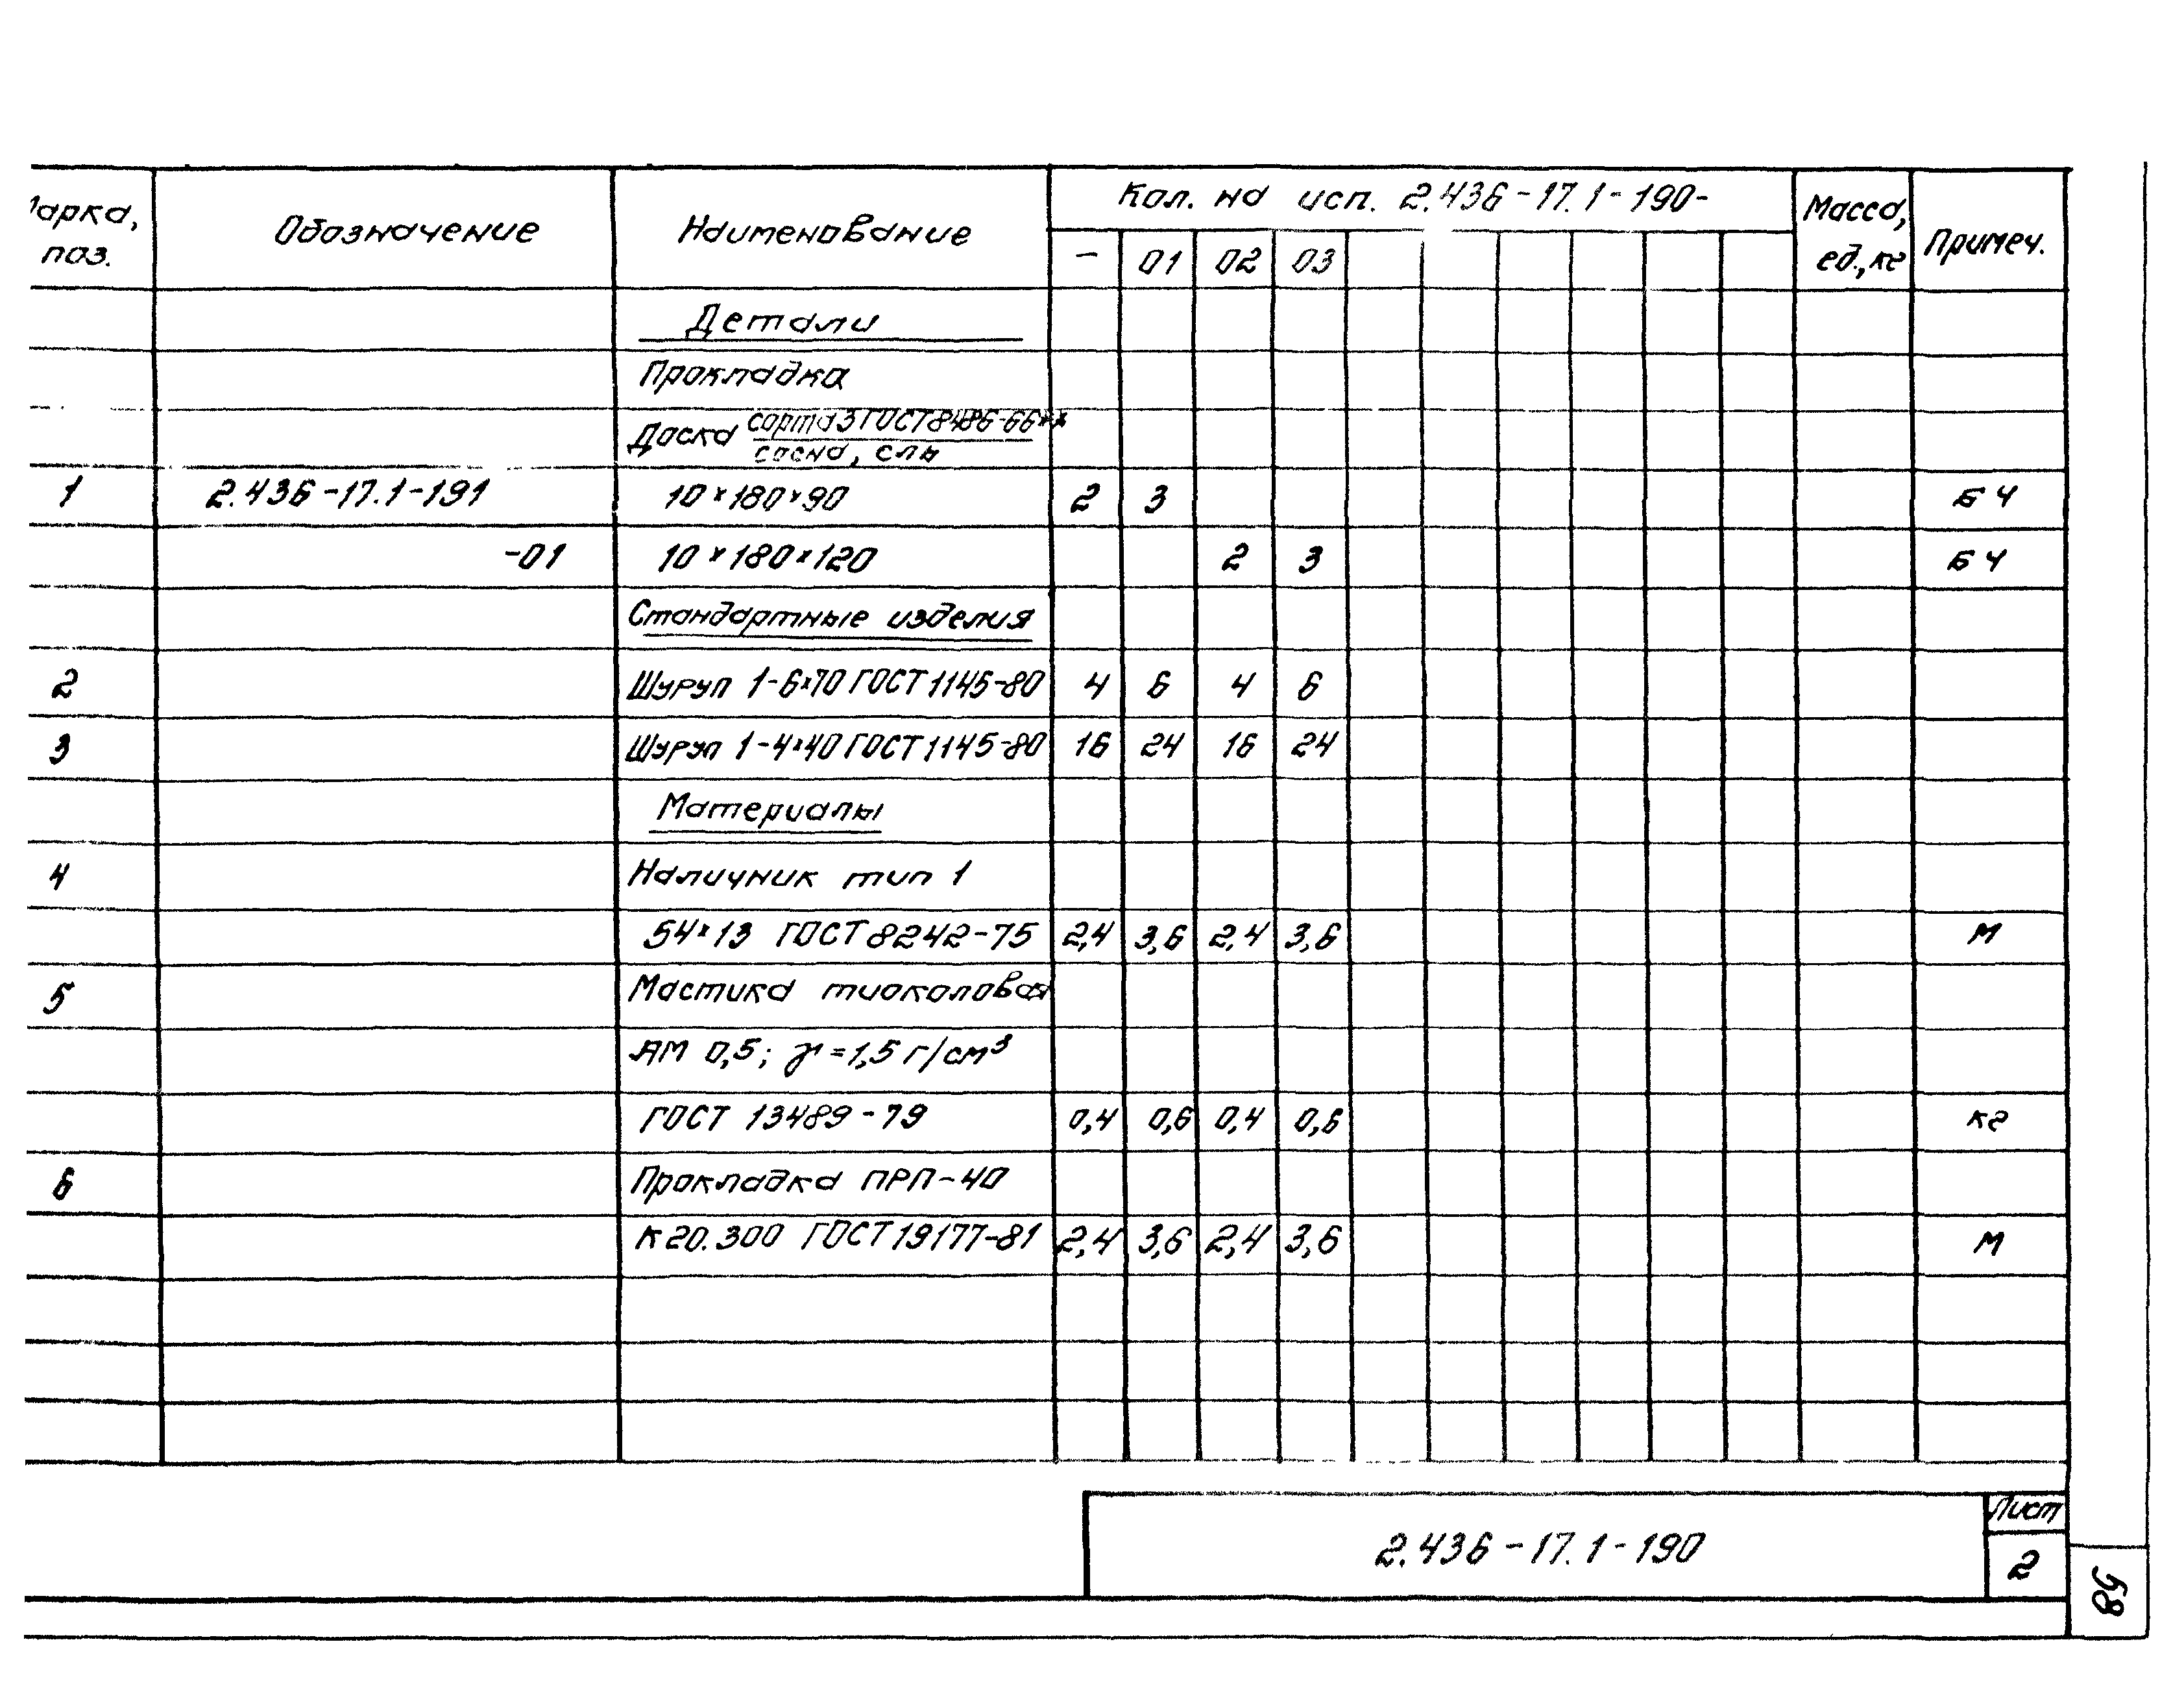 Марка, поз. Обозначение Наименование Кол. на исп. 2.436-17.1-190- Масса, ед., кг Примеч.
- 01 02 03
Детали
Прокладка
Доска сорта 3 ГОСТ 8486-66**
сосна, ель
1 2.436-17.1-191 10×180×90 2 3 БЧ
-01 10×180×120 2 3 БЧ
Стандартные изделия
2 Шуруп 1-6×70 ГОСТ 1145-80 4 6 4 6
3 Шуруп 1-4×40 ГОСТ 1145-80 16 24 16 24
Материалы
4 Наличник тип 1
54×13 ГОСТ 8242-75 2,4 3,6 2,4 3,6 М
5 Мастика тиоколовая
АМ 0,5; γ=1,5 г/см³
ГОСТ 13489-79 0,4 0,6 0,4 0,6 кг
6 Прокладка ПРП-40
К20.300 ГОСТ 19177-81 2,4 3,6 2,4 3,6 М
2.436-17.1-190 Лист
2
58